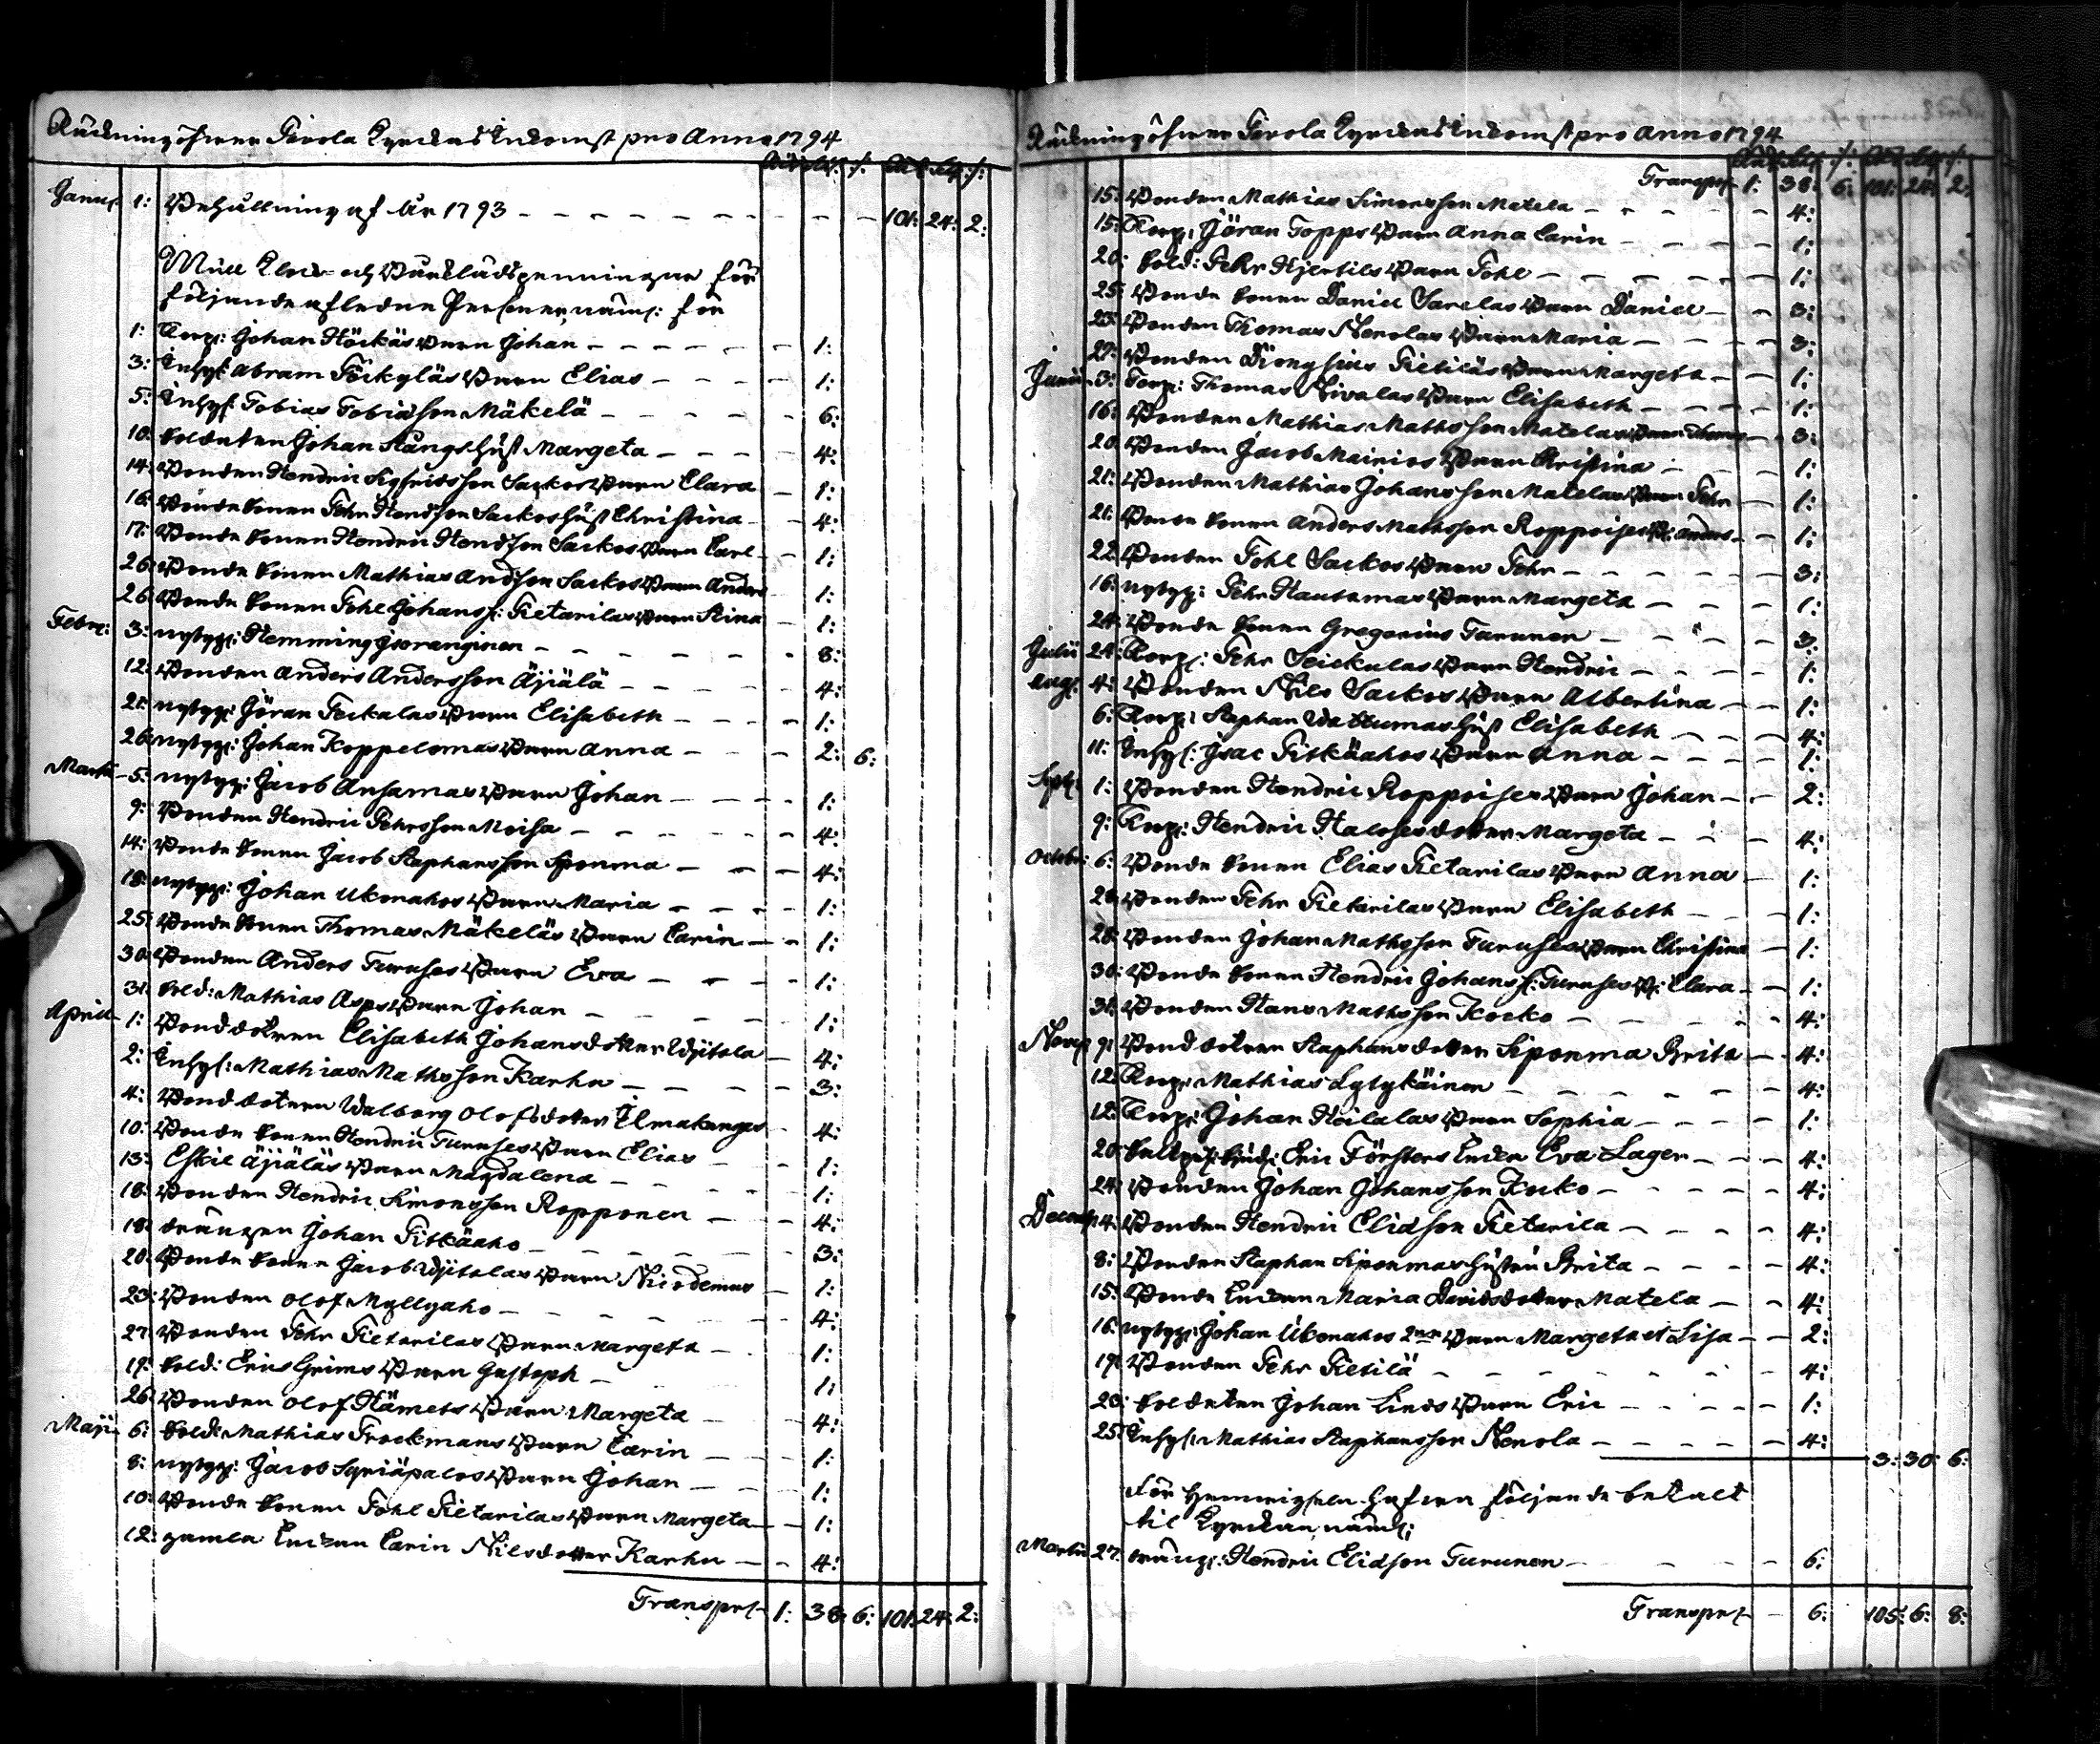 Räckning öfwer Tervola Kyrckas Inkomst pro Anno 1794
Rdr Sk: /: Rdr Sk: /:
Januj 1: Behållning af År 1793 - - - 101: 24: 2:
Mull Klock- och Bårklädspenningar för
följande afledne Personer, näml: för
1: Torp: Johan Höckäs Barn Johan - - - 1:
3: Inhys: Abram Föckyläs Barn Elias - - - 1:
5: Inhys: Tobias Tobiæson Mäkelä - - - 6:
10: Soldaten Johan Stångs hust Margeta - - - 4:
14: Bonden Hendric Sigfridsson Sackos Barn Clara - 1:
16: Bonde Sonen Pehr Hendson Sackos hust Christina - 4:
17: Bonde Sonen Hendric Hendson Sackos Barn Carl - 1:
26: Bonde Sonen Mathias Andson Sackos Barn Anders 1:
26: Bonde Sonen Pohl Johans: Pietarilas Barn Stina 1:
Febru: 3: nybyg: Hemming - - - 8:
12: Bonden Anders Andersson Äjälä - - - 4:
21: nybyg: Göran Peckalas Barn Elisabeth - - - 1:
26: nybyg: Johan Koppelomas Barn Anna - - - 2: 6:
Martii 5: nybyg: Jacob Ansamas Barn Johan - - - 1:
9: Bonden Hendric Pehrsson Moisa - - - 4:
14: Bonde Sonen Jacob Staphansson Sponma - - - 4:
18: nybyg: Johan Ukonahos Barn Maria - - - 1:
25: Bonde Sonen Thomas Mäkeläs Barn Carin - - 1:
30: Bonden Anders Turuses Barn Eva - - - 1:
31: Sold: Mathias Asps Barn Johan - - - 1:
April 1: Bonddottren Elisabeth Johansdotter Wjitala - 4:
2: Inhys: Mathias Mathsson Karhu - - - 3:
4: Bonddottren Walborg Olofsdotter Ilmakangas - 4:
10: Bonde Sonen Hendric Turuses Barn Elias - 1:
13: Eskil Äjäläs Barn Magdalena - - - 1:
18: Bonden Hendric Simonsson Ropponen - - 4:
18: drängen Johan Pitkäaho - - - 3:
20: Bonde Sonen Jacob Wjitalas Barn Nicodemus - 1:
23: Bonden Olof Myllyaho - - - 4:
27: Bonden Pehr Pietarilas Barn Margeta - 1:
19: Sold: Erics Grims Barn Gustaph - 1:
26: Bonden Olof Hämets Barn Margeta - - 4:
Maji 6: Sold: Mathias Trockmans Barn Carin - - 1:
8: nybyg: Jacob Syriäpalos Barn Johan - - 1:
10: Bonde Sonen Pohl Pietarilas Barn Margeta - - 1:
12: gamla Enckan Carin Nilsdotter Karhu - - 4:
Transport 1: 38: 6: 101: 24: 2:
Räckning öfwer Tervola Kyrckas Inkomst pro Anno 1794
Rdr Sk: /: Rdr Sk: /:
Transport 1: 38: 6: 101: 24: 2:
15: Bonden Mathias Simonsson Matela - - - 4:
15: Torp: Göran Topps Barn Anna Carin - - - 1:
20: Sold: Pehr Hjertils Barn Pohl - - - 1:
25: Bonde Sonen Daniel Sarelas Barn Daniel - - 3:
23: Bonden Thomas Nerolas Barn Maria - - - 3:
27: Bonden Dionysius Pietiläs Barn Margeta - - 1:
Junii 3: Torp: Thomas Nivalas Barn Elisabeth - - - 1:
16: Bonden Mathias Mathsson Matelas Barn Thomas - 3:
20: Bonden Jacob Mainios Barn Christina - - - 1:
21: Bonden Mathias Johansson Matelas Barn Pehr - 1:
21: Bonde Sonen Anders Mathsson Roppoises B: Anders - 1:
22: Bonden Pohl Sackos Barn Pehr - - - 3:
16: nybyg: Pehr Hautamas Barn Margeta - - - 1:
24: Bonde Sonen Gregorius Tarunen - - - 3:
Julii 24: Torp: Pehr Seickulas Barn Hendric - - - 1:
Aug: 4: Bonden Nils Sackos Barn Albertina - - 1:
6: Torp: Staphan Wattumas hust Elisabeth - - - 4:
11: Inhys: Isac Pitkäahos Barn Anna - - - 1:
Sept: 1: Bonden Hendric Roppoises Barn Johan - - 2:
9: Torp: Hendric Haloses dotter Margeta - - - 4:
Octobr: 6: Bonde Sonen Elias Pietarilas Barn Anna - 1:
28: Bonden Pehr Pietarilas Barn Elisabeth - - - 1:
28: Bonden Johan Mathsson Turuses Barn Christina - 1:
30: Bonde Sonen Hendric Johans: Turuses B: Clara - - 1:
31: Bonden Hans Mathsson Kocko - - - 4:
Novem 9: Bonddottren Staphansdotter Siponma Brita - - 4:
12: Torp: Mathias Lytykäinen - - - 4:
12: Torp: Johan Heilalas Barn Sophia - - - 1:
20: Eric Försters Encka Eva Lager - - - 4:
24: Bonden Johan Johansson Kocko - - - 4:
Decemb: 4: Bonden Hendric Eliæson Pietarila - - - 4:
8: Bonden Staphan Siponmas hustru Brita - - - 4:
15: Bonde Enckan Maria Davidsdotter Matela - - 4:
16: nybyg: Johan Ukonahos 2ne Barn Margeta et Lisa - - 2:
19: Bonden Pehr Pietilä - - - 4:
20: Soldaten Johan Linds Barn Eric - - - 1:
25: Inhys: Mathias Staphansson Nerola - - - 4:
3: 30: 6:
För hafwa följande betalt
til Kyrckan näml:
Martii 27: dräng: Hendric Eliæson Turunen - - - 6:
Transport - 6: 105: 6: 8: